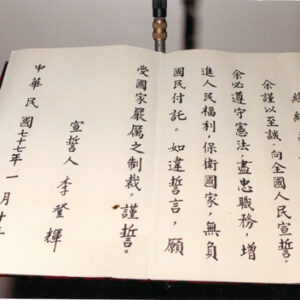 總統
余謹以至誠,向全國人民宣誓,
余必遵守憲法,盡忠職務,增
進人民福利,保衛國家,無負
國民付託。如違誓言,願
受國家嚴厲之制裁。謹誓。
宣誓人 李登輝
中華民國七十七年一月十